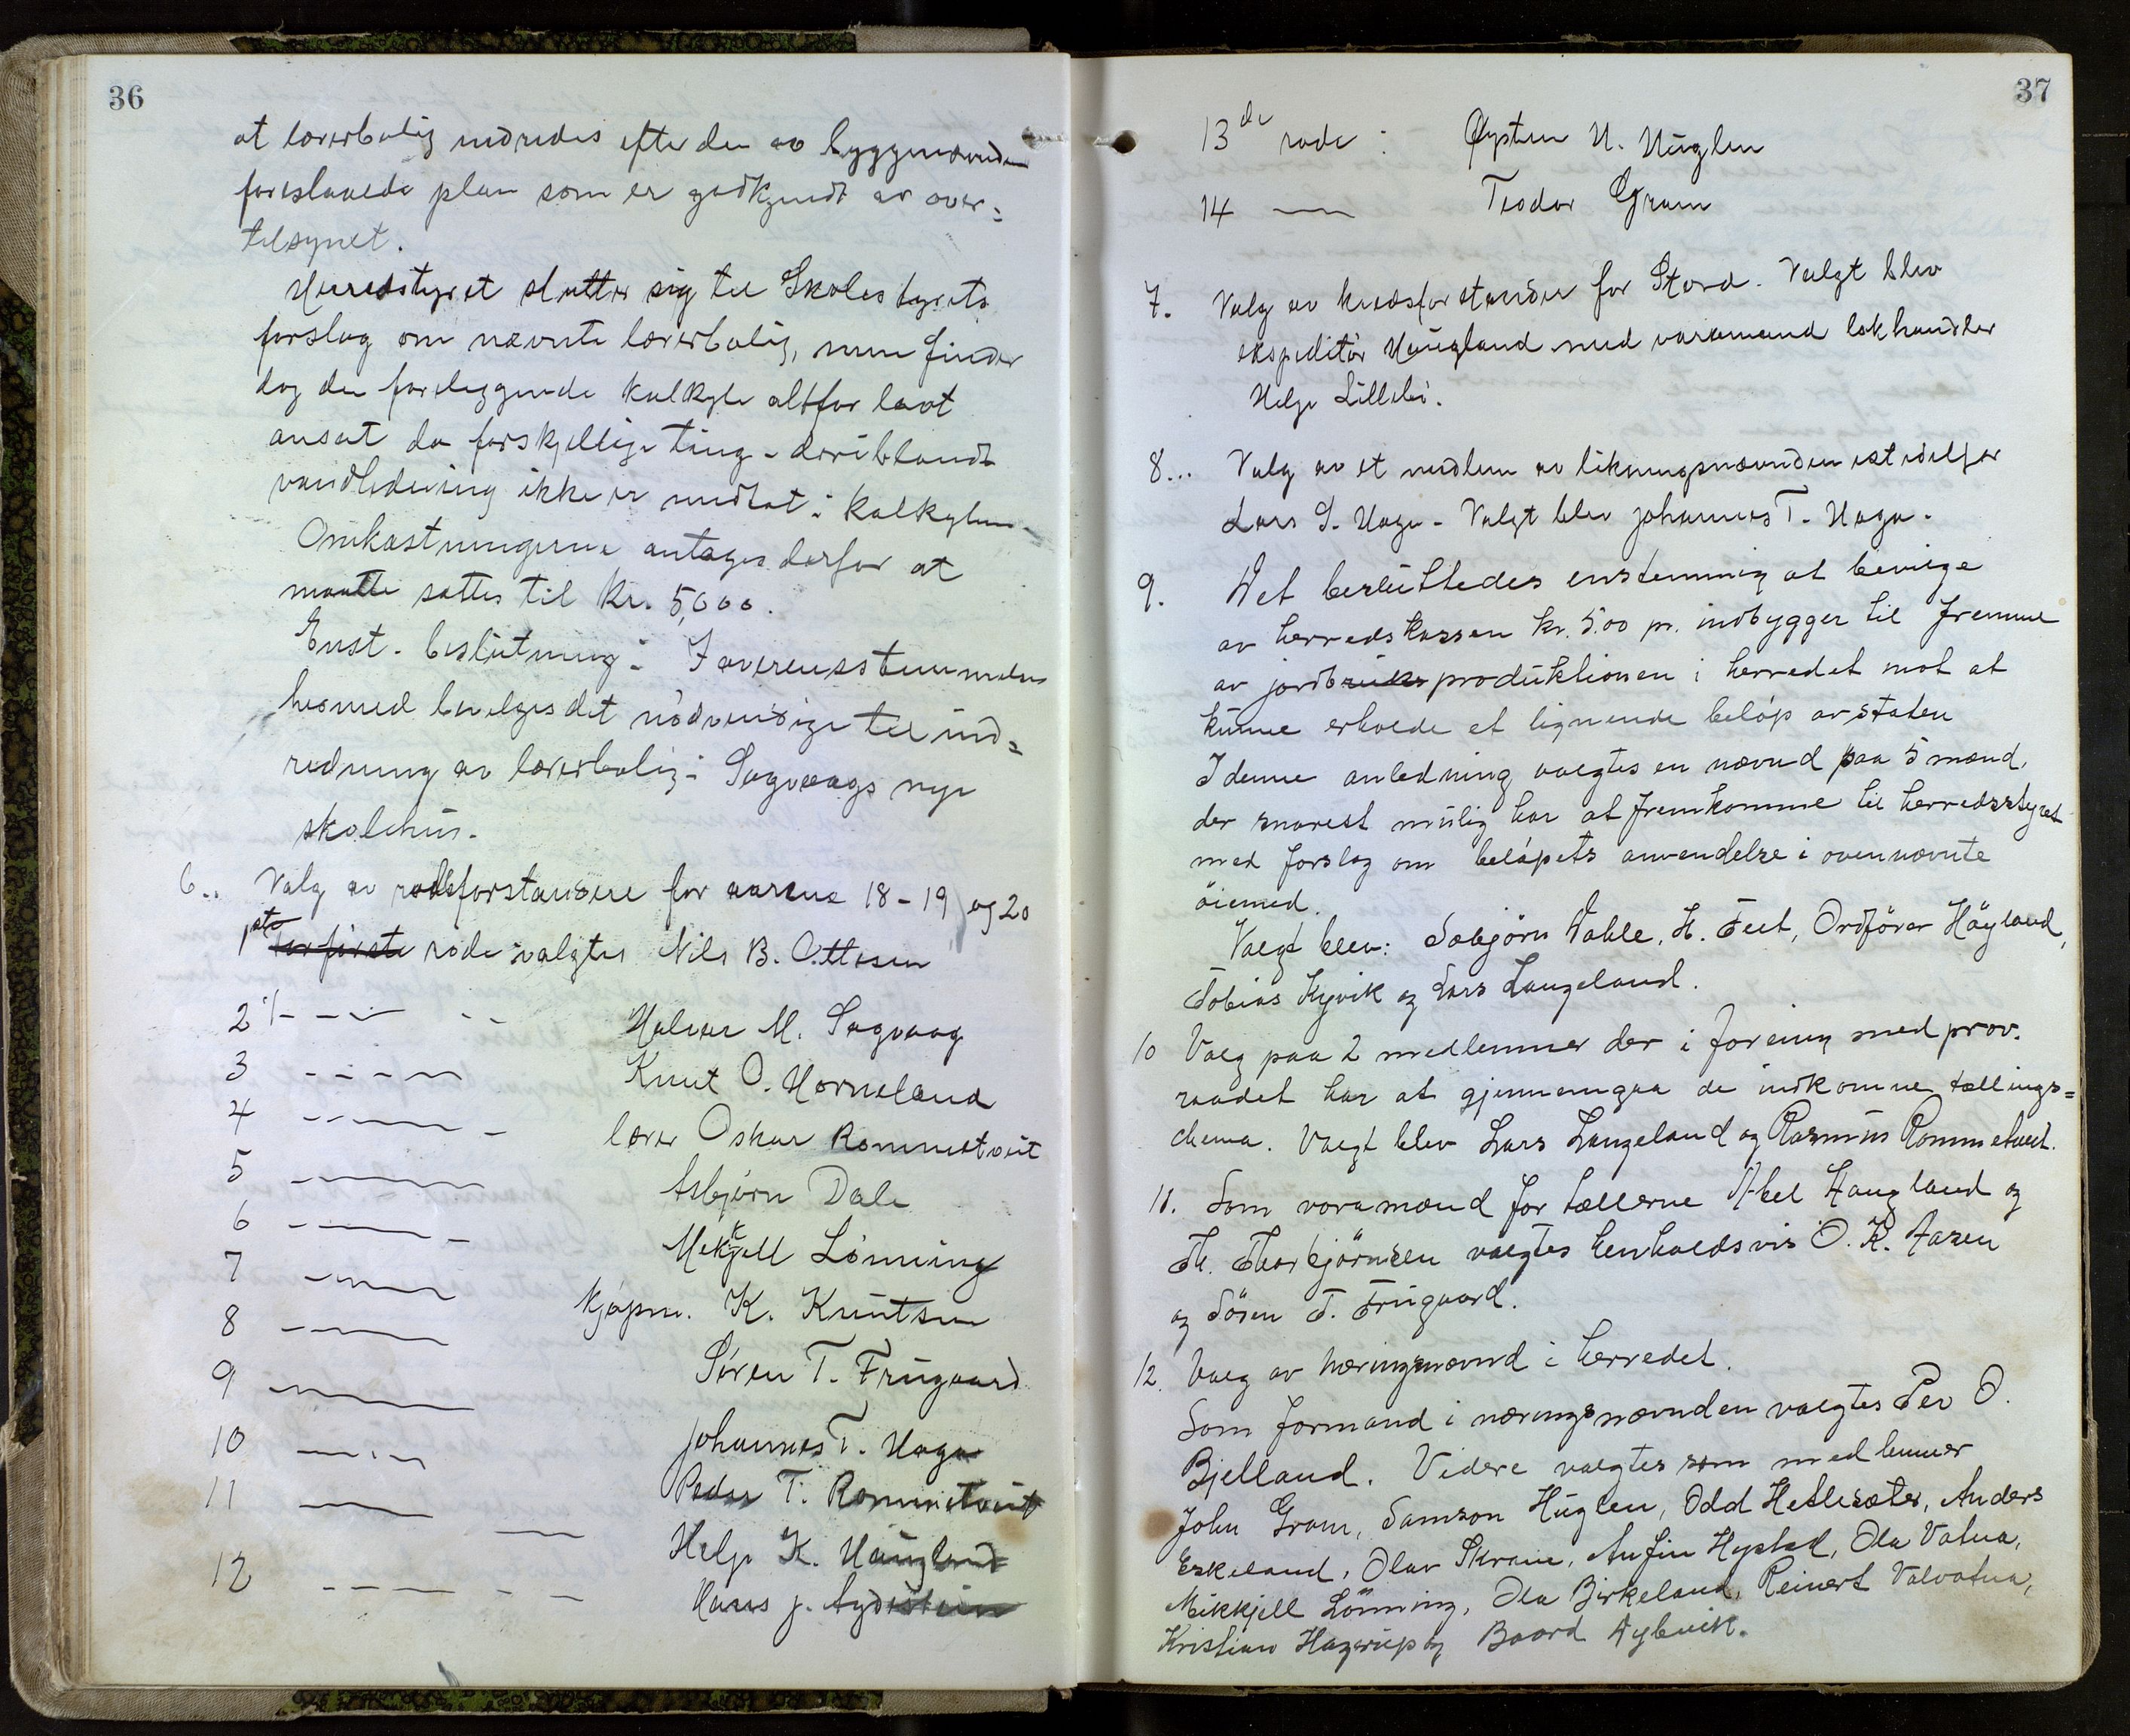 36
at lærerbolig indredes efter den av byggenævnden
foreslaaede plan som er godkjendt av over=
tilsynet.
Herredstyret slutter sig til Skolestyrets
forslag om nævnte lærerbolig, men finder
dog den foreliggende kalkyle altfor lavt
ansat da forskjellige ting - deriblandt
vandledning ikke er medtat i kalkylen -
Omkostningerne antages derfor at
maatte sættes til kr. 5,000.
Enst. beslutning: I overensstemmelse
hermed bevilges det nödvendige til ind=
redning av lærerbolig i Sagvaags nye
skolehus.
6.. Valg av rodeforstandere for aarene 18-19 og 20
1ste For første rode valgtes Nils B. Ottesen
2 Halvor M. Sagvaag
3 Knut O. Horneland
4 lærer Oskar Rommetveit
5 Asbjørn Dale
6 Mekkjell Lönning
7 kjøpm. K. Knutsen
8 Sören T. Frugaard
9 Johannes T. Haga
10 Peder T. Rommetveit
11 Helge K. Haugland
12 Hans J. Aydstein
37
13de rode: Øystein H. Huglen
14 Teodor Gram
7. Valg av kredsforstander for Stord. Valgt blev
ekspeditör Haugland med varamand lakhandler
Helge Lillebö.
8... Valg av et medlem av likningsnævnden istedetfor
Lars S. Haga - Valgt blev Johannes T. Haga.
9. Det besluttedes enstemmig at bevilge
av herredskassen kr. 5.00 pr. indbygger til fremme
av jordbruks produktionen i herredet mot at
kunne erholde et lignende beløp av staten
I denne anledning valgtes en nævnd paa 5 mænd,
der snarest mulig har at fremkomme til herredsstyret
med forslag om beløpets anvendelse i ovennævnte
öiemed.
Valgt blev: Sæbjörn Dahle, H. Feet, Ordförer Höyland,
Tobias Kyvik og Lars Langeland.
10 Valg paa 2 medlemmer der i forening med prov.
raadet har at gjennemgaa de indkomne tællings=
chema. Valgt blev Lars Langeland og Rasmus Rommetveit.
11. Som varamænd for tællerne Abel Haugland og
Th. Thorbjörnsen valgtes henholdsvis O. K. Aasen
og Sören T. Frugaard.
12. Valg av næringsnævnd i herredet.
Som formand i næringsnævnden valgtes Per O.
Bjelland. Videre valgtes som medlemmer
John Gram, Samson Huglen, Odd Hetlesæter, Anders
Eskeland, Olav Skraue, Anfin Hystad, Ola Vatna,
Mikkjell Lönning, Ola Birkeland, Reinert Valvatna,
Kristian Hagerup og Baard Aglevik.